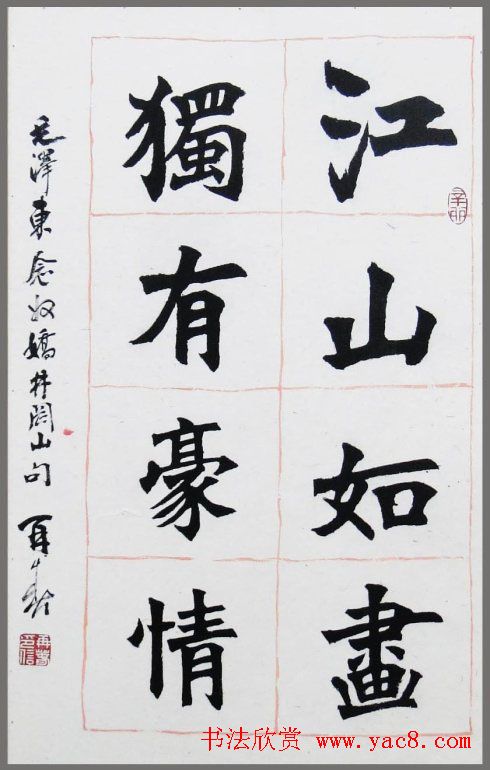 江山如畫
獨有豪情
毛澤東念奴嬌井岡山句
辛卯
书法欣赏 www.yac8.com